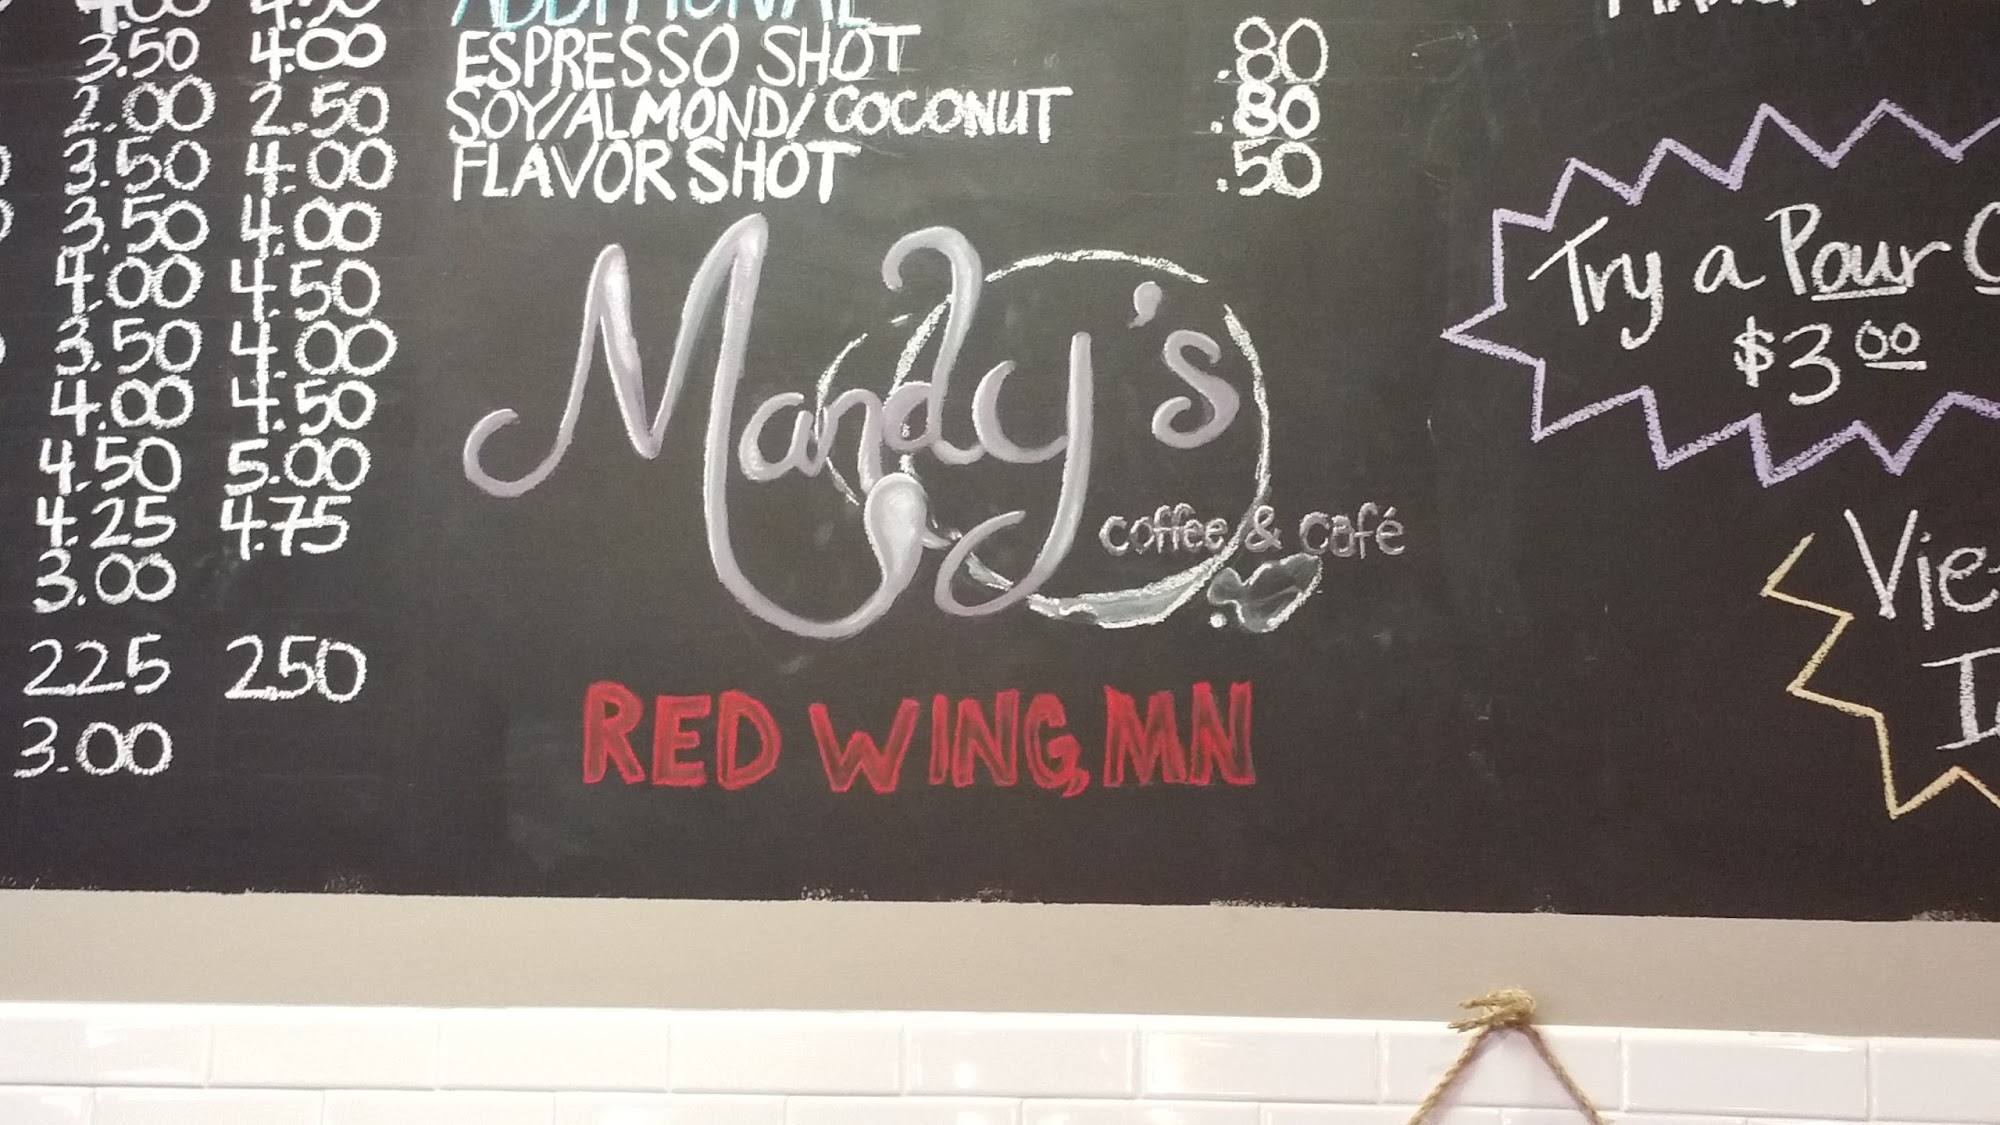 4.00 4.50
3.50 4.00
2.00 2.50
3.50 4.00
3.50 4.00
4.00 4.50
3.50 4.00
4.00 4.50
4.50 5.00
4.25 4.75
3.00
2.25 2.50
3.00
ADDITIONAL
ESPRESSO SHOT .80
SOY/ALMOND/COCONUT .80
FLAVOR SHOT .50
Mandy's
coffee & café
RED WING, MN
Try a Pour
$3.00